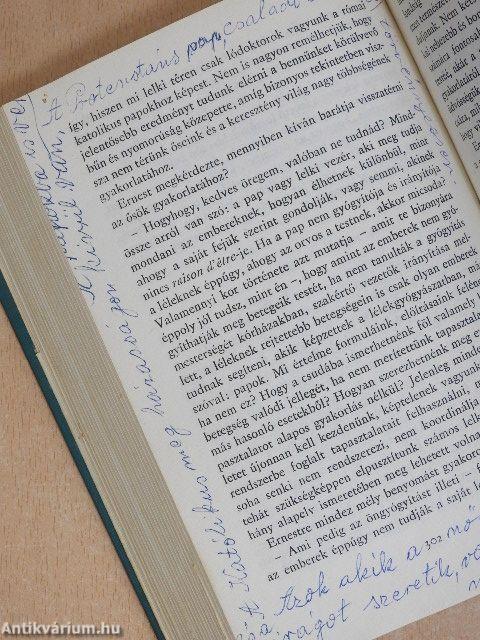 A Protenstáns pap, család
így, hiszen mi lelki téren csak lódoktorok vagyunk a római
katolikus papokhoz képest. Nem is nagyon remélhetjük, hogy
jelentősebb eredményt tudunk elérni a bennünket körülvevő
bűn és nyomorúság közepette, amíg bizonyos tekintetben visz-
sza nem térünk őseink és a keresztény világ nagy többségének
gyakorlatához.
Ernest megkérdezte, mennyiben kíván barátja visszatérni
az ősök gyakorlatához?
– Hogyhogy, kedves öregem, valóban ne tudnád? Mind-
össze arról van szó: a pap vagy lelki vezér, aki meg tudja
mondani az embereknek, hogyan élhetnek különbül, mint
ahogy a saját fejük szerint gondolják, vagy semmi, akinek
nincs raison d'être-je. Ha a pap nem gyógyítója és irányítója
a léleknek éppúgy, ahogy az orvos a testnek, akkor micsoda?
Valamennyi kor története azt mutatja – amit te bizonyára
éppoly jól tudsz, mint én –, hogy amint az emberek nem gyó-
gyíthatják meg betegeik testét, ha nem tanulták a gyógyítás
mesterségét kórházakban, szakértő vezetők irányítása mel-
lett, a léleknek rejtettebb betegségein is csak olyan emberek
tudnak segíteni, akik képzettek a lélekgyógyászatban, más
szóval: papok. Mi értelme formuláink, előírásaink felén
ha nem ez? Hogy a csudába ismerhetnénk föl valamely l
betegség valódi jellegét, ha nem merítettünk tapasztala
más hasonló esetekből? Hogyan szerezhetnénk meg e
pasztalatot alapos gyakorlás nélkül? Jelenleg mind
letet újonnan kell kezdenünk, képtelenek vagyunk
rendszerbe foglalt tapasztalatait felhasználni, m
soha senki nem rendszerezi, nem koordinálja
tehát szükségképpen elpusztítunk számos lel
hány alapelv ismeretében meg lehetett volna
Ernestre mindez mély benyomást gyakor
– Ami pedig az öngyógyítást illeti –
az emberek éppúgy nem tudják a saját l
302
Azok akik a nő
szeretik, v
A Katolikus meg házasságon kívül van,
Antikvárium.hu